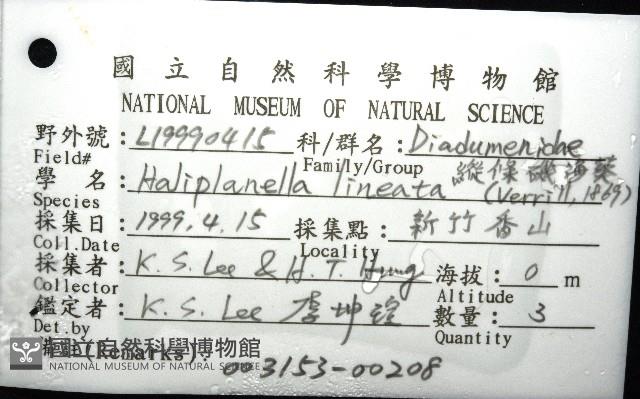 國立自然科學博物館
NATIONAL MUSEUM OF NATURAL SCIENCE
野外號: L19990415 科/群名: Diadumenidae
Field# Family/Group 縱條磯海葵
學 名: Haliplanella lineata (Verrill, 1869)
Species
採集日: 1999.4.15 採集點: 新竹香山
Coll.Date Locality
採集者: K.S.Lee & H.T. Hung 海拔: 0 m
Collector Altitude
鑑定者: K.S. Lee 李坤瑄 數量: 3
Det.by Quantity
(Remarks):
國立自然科學博物館
NATIONAL MUSEUM OF NATURAL SCIENCE
3153-00208